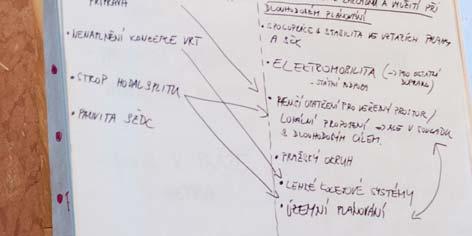 PŘÍPRAVA
• NENAPLNĚNÍ KONCEPCE VRT
• STROP MODAL SPLITU
• PAVITA SŽDC
A VYUŽITÍ PŘI
DLOUHODOBÉM PLÁNOVÁNÍ
• SPOLUPRÁCE A STABILITA VE VZTAZÍCH PRAHY
A SČK
• ELEKTROMOBILITA (→ PRO OSTATNÍ
DOPRAVU)
- STÁTNÍ PODPORA
• MENČÍ OPATŘENÍ PRO VEŘEJNÝ PROSTOR/
LOKÁLNÍ PROPOJENÍ → ALE V SOULADU
S DLOUHODOBÝM CÍLEM.
• PRAŽSKÝ OKRUH
• LEHKÉ KOLEJOVÉ SYSTÉMY
• ÚZEMNÍ PLÁNOVÁNÍ